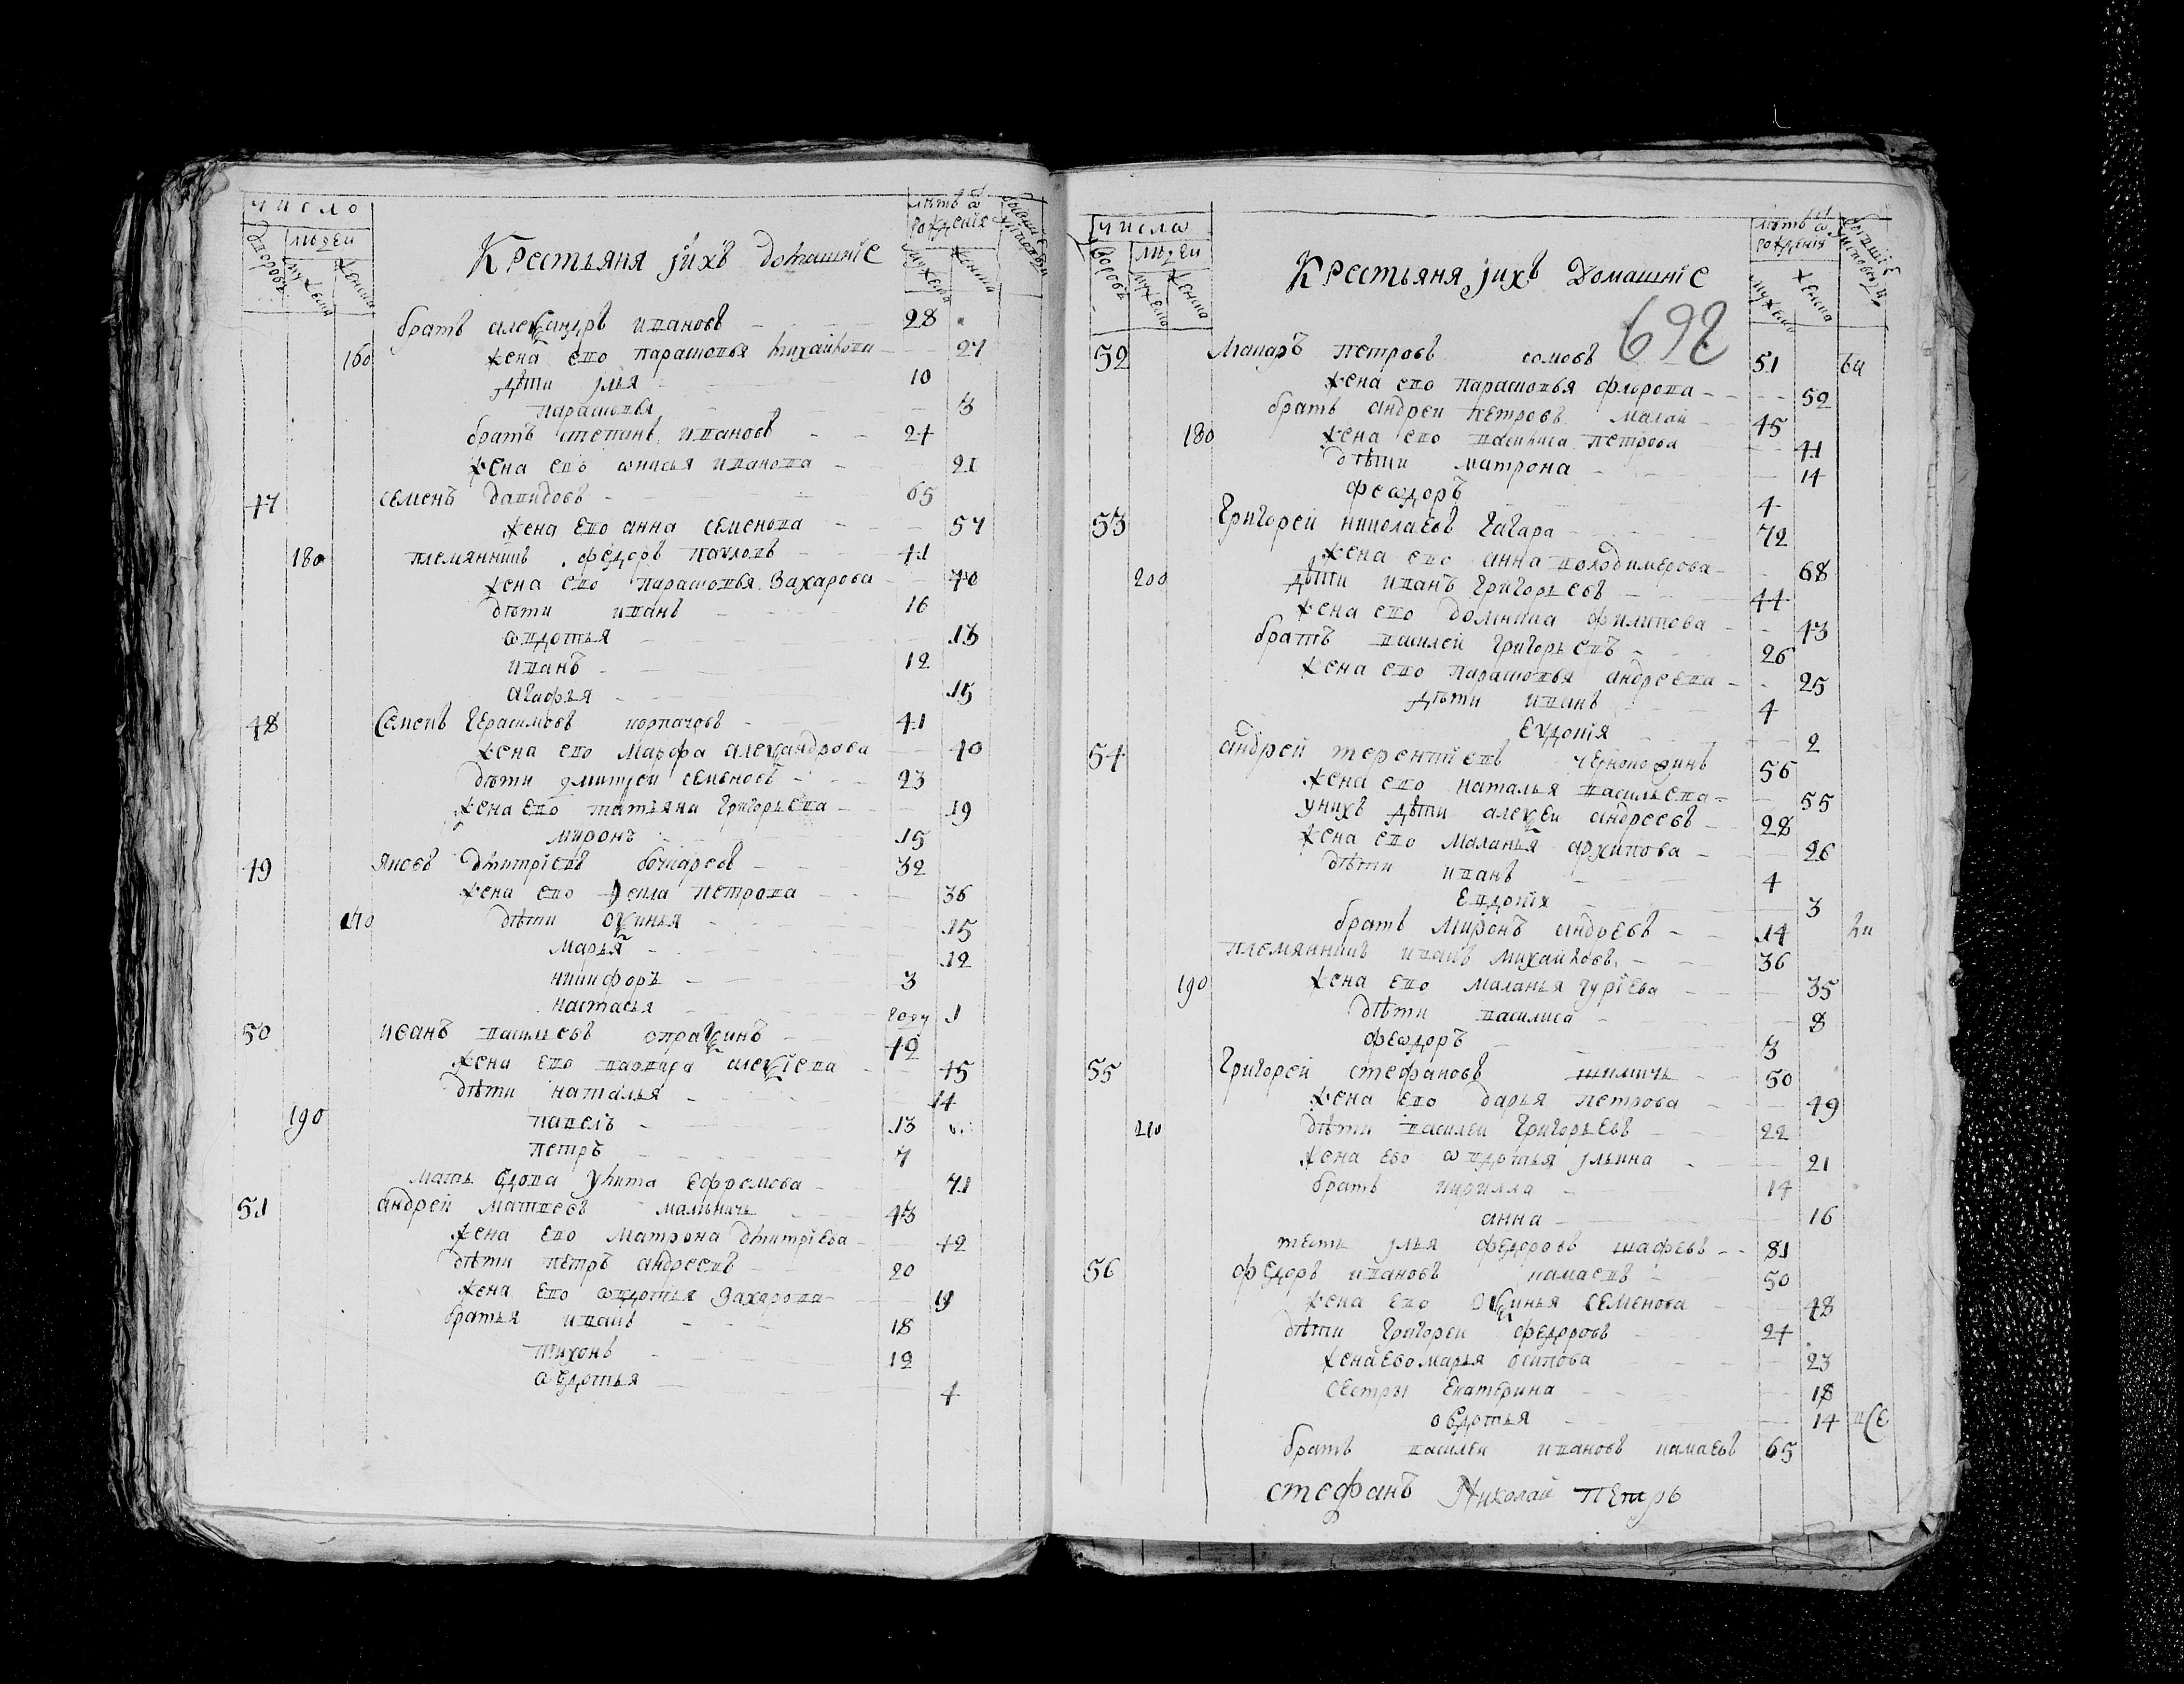 число
людей
дворовъ
мужеска
женска
Крестьяня їихъ домашнїе
лѣтъ ѿ рожденїя
мужеска
женска
братъ александръ ивановъ 28
160 жена ево парасковья михайлова 27
дѣти їлья 10
парасковья 3
братъ степанъ ивановъ 24
жена евѡ ѡнисья иванова 21
47 семенъ давидовъ 65
жена ево анна семенова 57
180 племянникъ федоръ павловъ 41
жена ево парасковья захарова 40
дѣти иванъ 16
ѡвдотья 13
иванъ 12
агафья 15
48 Семенъ герасимовъ корпачовъ 41
жена ево марфа алеѯандрова 40
дѣти дмитрей семеновъ 23
жена ево татьяна григорьева 19
миронъ 15
49 яковъ дмитрїевъ бочкаревъ 32
жена ево петрова 36
170 дѣти оѯинья 15
марья 12
никифоръ 3
настасья году 1
50 иванъ васильевъ опраѯинъ 42
жена ево варвара алеѯїева 45
дѣти наталья 14
190 павелъ 13
петръ 7
мать вдова улита ефремова 71
51 андрей матвеевъ малыничь 43
жена ево матрона дмитрїева 42
дѣти петръ андреевъ 20
жена ево ѡвдотья захарова 19
братья иванъ 18
тихонъ 12
авдотья 4
числѡ
людей
дворовъ
мужеска
женска
Крестьяня їихъ домашнїе
лѣтъ ѿ рожденїя
мужеска
женска
692
52 Макаръ петровъ сомовъ 51
жена ево парасковья флорова 52
братъ андреи петровъ малой 45
180 жена ево василиса петрова 41
дѣти матрона 14
феѡдоръ 4
53 Григорей николаевъ гагара 72
жена ево анна володимерова 68
200 дѣти иванъ григорьевъ 44
жена ево домника филипова 43
братъ василей григорьевъ 26
жена ево парасковья андреева 25
дѣти иванъ 4
евдокїя 2
54 андрей терентїевъ 56
жена ево наталья васильева 55
унихъ дѣти алеѯеи андреевъ 28
жена ево маланья архипова 26
дѣти иванъ 4
евдокїя 3
братъ миронъ андреевъ 14
племянникъ иванъ михайловъ 36
190 жена ево маланья гурїева 35
дѣти василиса 8
феѡдоръ 3
55 Григорей стефановъ шиличь 50
жена ево дарья петрова 49
210 дѣти василеи григорьевъ 22
жена ево ѡвдотья їльина 21
братъ кирилла 14
анна 16
тесть їлья федоровъ шафевъ 81
56 федоръ ивановъ камаевъ 50
жена ево оѯинья семенова 48
дѣти григореи федоровъ 24
жена ево марья осипова 23
сестры екатерина 18
овдотья 14 все
братъ василеи ивановъ камаевъ 65
стефанъ Николай петръ